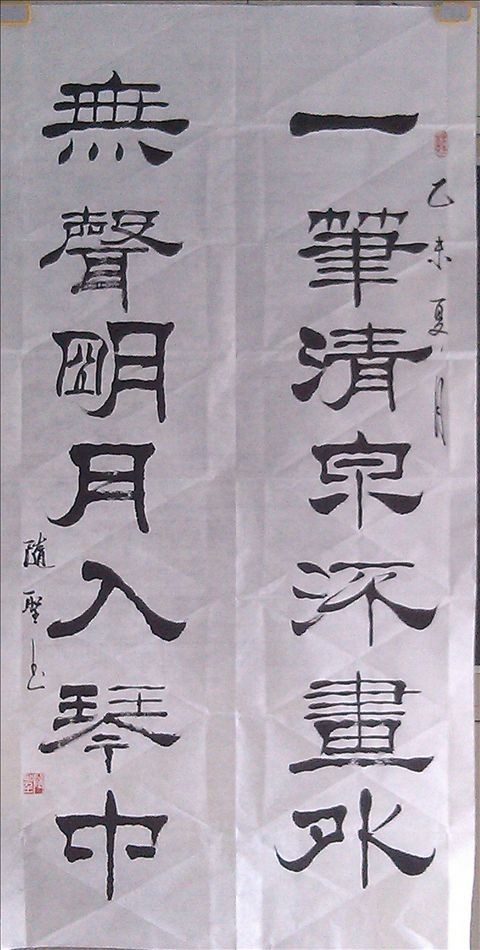 乙未夏月
一筆清泉㳅畫外
無聲明月入琴中
隨聖